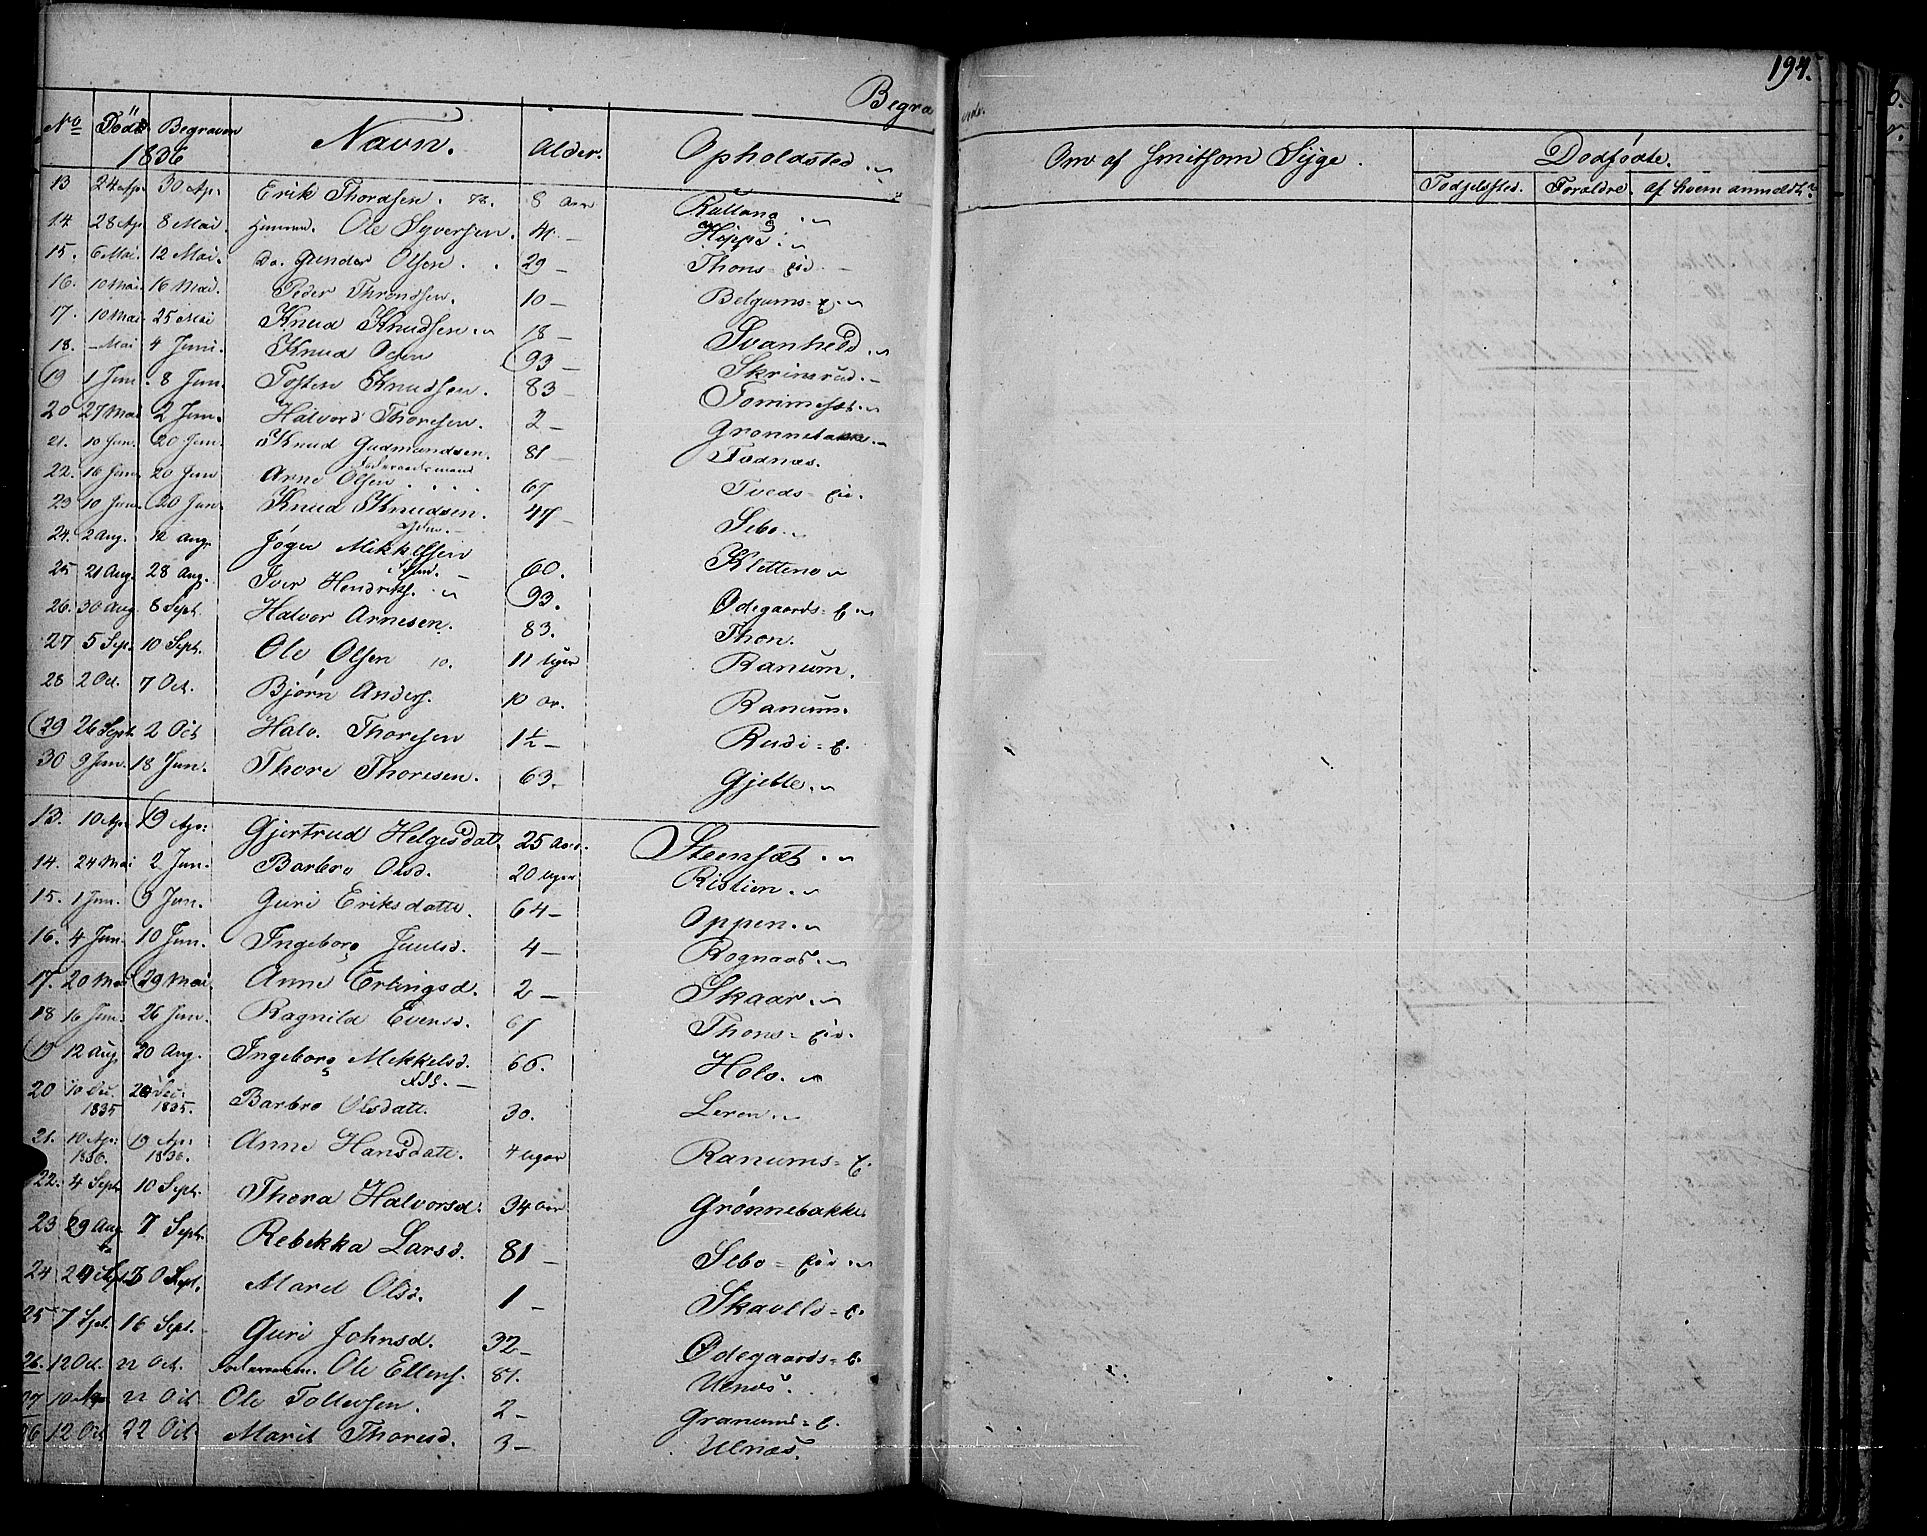 194.
Begravede.
No Död Begraven Navn. Alder. Opholdsted.
1836
Anv af Smitsom Syge. Dødfødte.
Fødselssted. Foraldre. af hvem anmeldt.
13 24 Ap. 30 Ap. Erik Thordsen. 8 Aar
14. 28 Ap. 8 Mai. Ole Syversen. 4 — Høppe
15. 6 Mai. 12 Mai. Do. Gunder Olsen. 29 — Thons-Eie
16. 10 Mai 16 Mai. Peder Throndsen. 10 — Belgums-E.
17. 10 Mai 25 Mai Knud Knudsen. 18 — Svanheld
18. — Mai 4 Juni. Knud 93 — Skrinsrud.
19 1 Jun. 8 Jun. Tosten Knudsen. 83 — Tommesæt.
20 27 Mai 2 Jun. Halvord Thoresen. 2 — Grønnebakke.
21. 10 Jun. 20 Jun. Knud Gudmundsen. 81 — Fodnæs.
22. 16 Jun. 20 Jun Føderaadsmand Arne Olsen 67 Tveds-Eie.
23 10 Jun. 20 Jun. Knud Knudsen. 47 — Sebo.
24. 2 Aug. 12 Aug. Jøger Mikkelsen 60. Klettene
25 21 Aug. 28 Aug. Iver Hendriks. 93. Ødegaards-E.
26. 30 Aug 8 Sept. Halvor Arnesen. 83. Thon.
27 5 Sep. 10 Sept. Ole Olsen 11 Uger Ranum.
28 2 Oct. 7 Oct. Bjørn Anders. 10 Ar. Ranum.
29 26 Sept. 2 Oct Halv. Thoresen 1½ — Rudi-E.
30 9 Jun. 18 Jun. Thore Thoresen. 63. Gjeble.
13. 10 Ap. 19 Apr: Gjertrud Helgesdat. 25 Aar. Steensæt.
14. 24 Mai 2 Jun. Barbro Olsd. 20 Uger Ristien.
15. 1 Jun. 9 Jun. Guri Eriksdatte. 64 — Oppen.
16. 4 Jun. 10 Jun. Ingeborg Juulsd. 4 — Rognaas.
17. 20 Mai 29 Mai. Anne Erlingsd. 2 — Skaar.
18 16 Jun. 26 Jun. Ragnild Evensd. 67 Thons-Eie.
19 12 Aug 20 Aug. Ingeborg Mekkelsd. 66. Holo.
20 10 Dec. 1835 26 Dec. 1835. Barbro Olsdatt. 30. Leren.
21. 10 Apr: 1836. 19 Apr: 1836. Anne Hansdatt. 4 Uger Ranums-E.
22. 4 Sept. 10 Sept. Thora Halvorsd. 34 Aar Grønnebakke
23 29 Aug 7 Sept. Rebekka Larsd. 81 — Sebo-Eie.
24 24 Sept. 30 Sept. Maret Olsd. 1 — Skavlls-E.
25 7 Sept. 16 Sept. Guri Johnsd. 32 — Ødegaards-E.
26. 12 Oct. 22 Oct. Ole Ellens. 87. Ulnæs.
27 10 22 Oct Ole Tollevsen. 2 — Granums-E.
26 12 Oct 22 Oct. Marit Thoresd. 3 — Ulnæs.